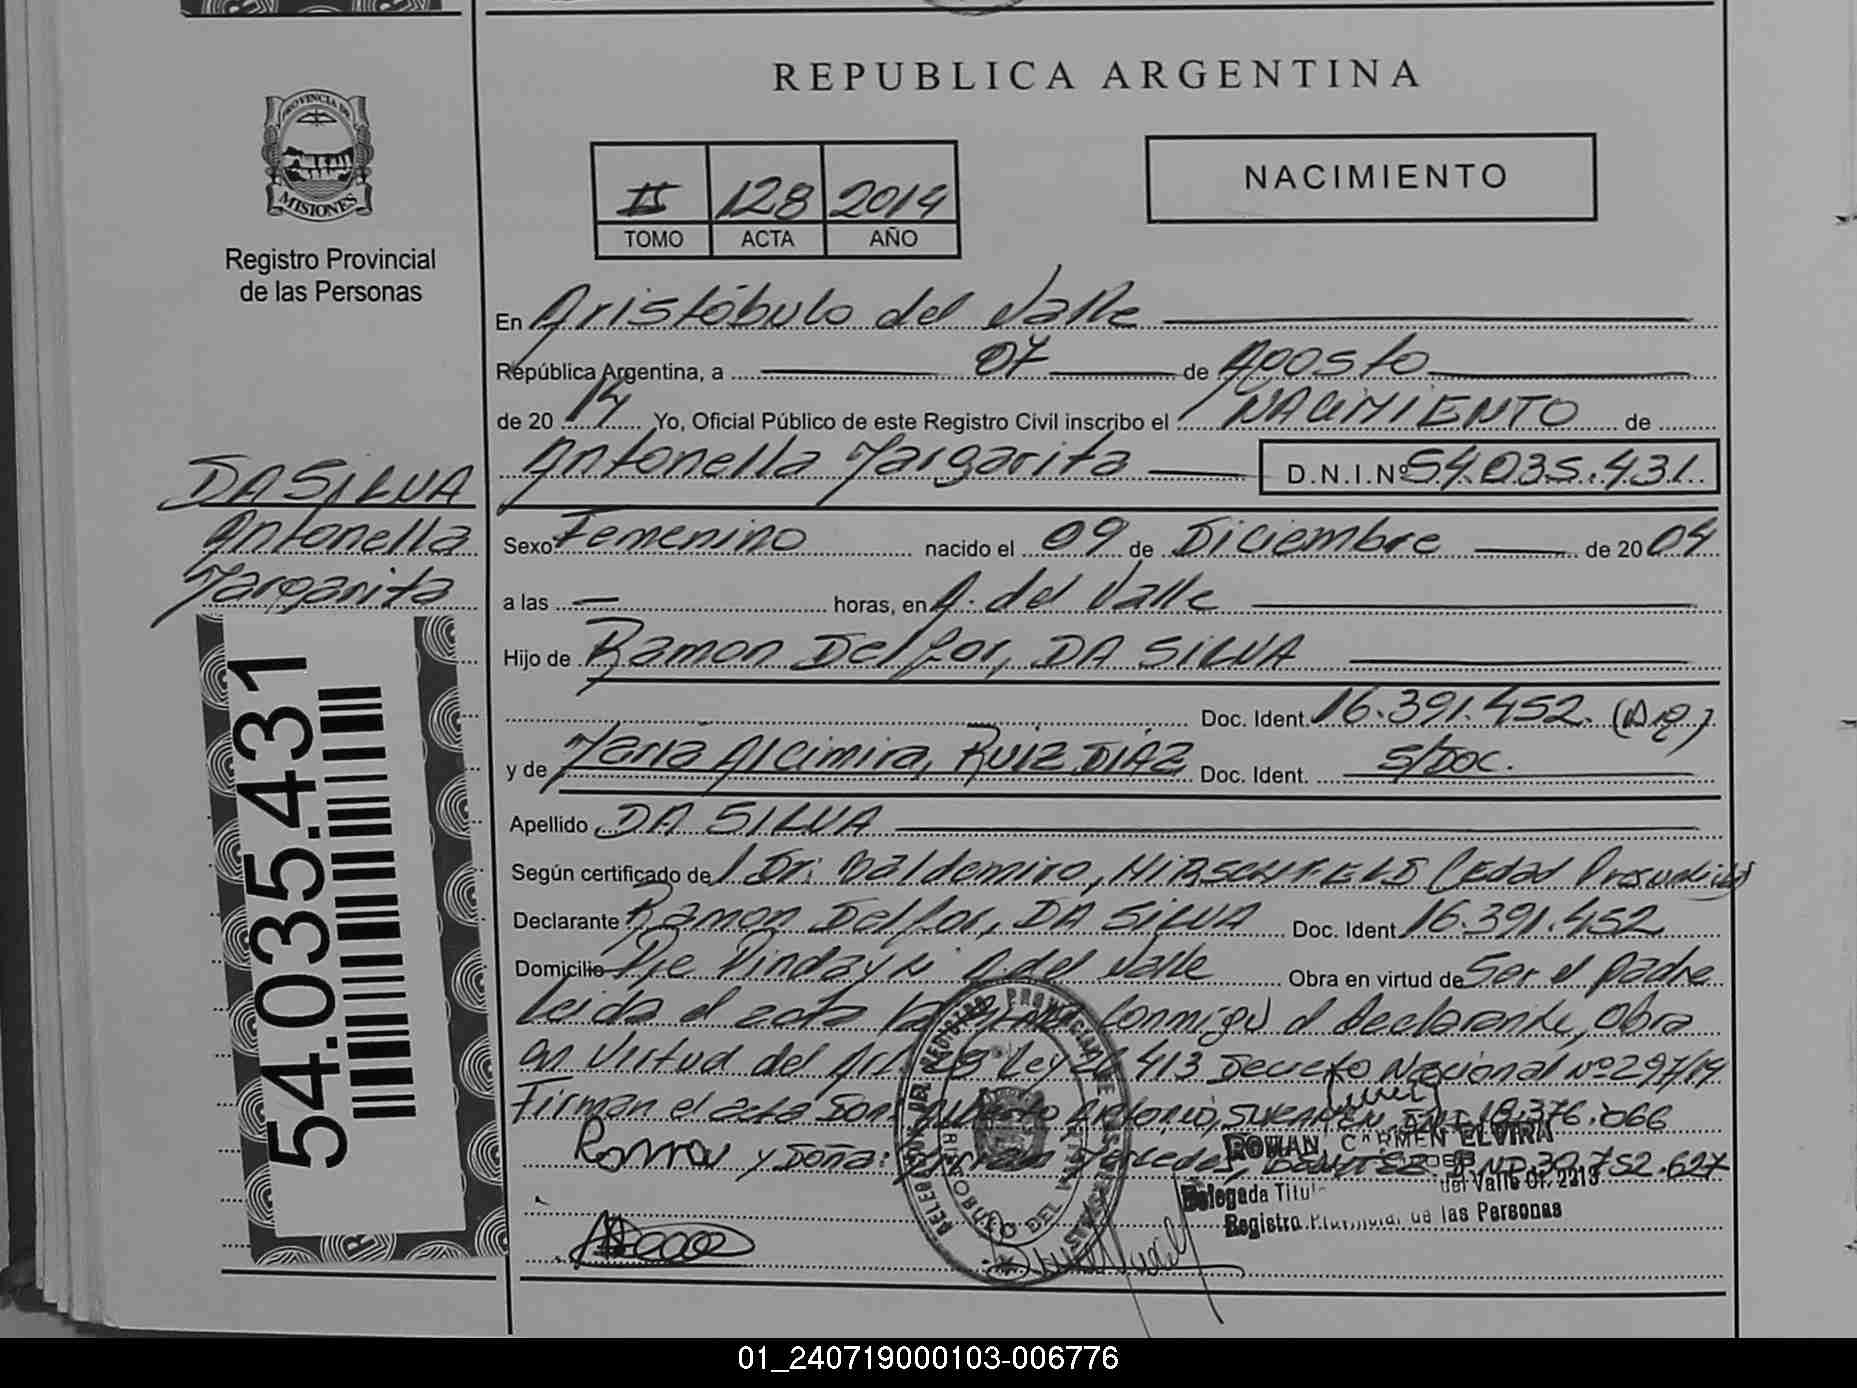 REPUBLICA ARGENTINA
PROVINCIA DE
MISIONES
Registro Provincial
de las Personas
II 128 2014
TOMO ACTA AÑO
NACIMIENTO
En Aristóbulo del Valle
República Argentina, a 07 de Agosto
de 20 14 Yo, Oficial Público de este Registro Civil inscribo el NACIMIENTO de
Antonella Margarita D.N.I.Nº 54.035.431.
DA SILVA
Antonella
Margarita
54.035.431
Sexo Femenino nacido el 09 de Diciembre de 20 04
a las — horas, en A. del Valle
Hijo de Ramon Delfor, DA SILVA
Doc. Ident. 16.391.452. (Arg.)
y de Maria Alcimira, RUIZ DIAZ Doc. Ident. S/Doc.
Apellido DA SILVA
Según certificado de Dr: Waldemiro, HIRSCHFELD (Edad
Declarante Ramon Delfor, DA SILVA Doc. Ident. 16.391.452
Domicilio Pje Pindayti A. del Valle Obra en virtud de Ser el padre
Leida el acta la conmigo el declarante, Obra
en virtud del Art. Ley 413 Decreto Nacional nº 297/14
Firman el acta Don: Alberto Antonio, DNI 18.376.066
y Doña: Mercedes, DNI 30.752.627
ROMAN CARMEN ELVIRA
Delegada Titu del Valle Of. 2213
Registro Provincial de las Personas
DELEGACION DEL REGISTRO PROVINCIAL DE LAS PERSONAS
ARISTOBULO DEL VALLE
01_240719000103-006776